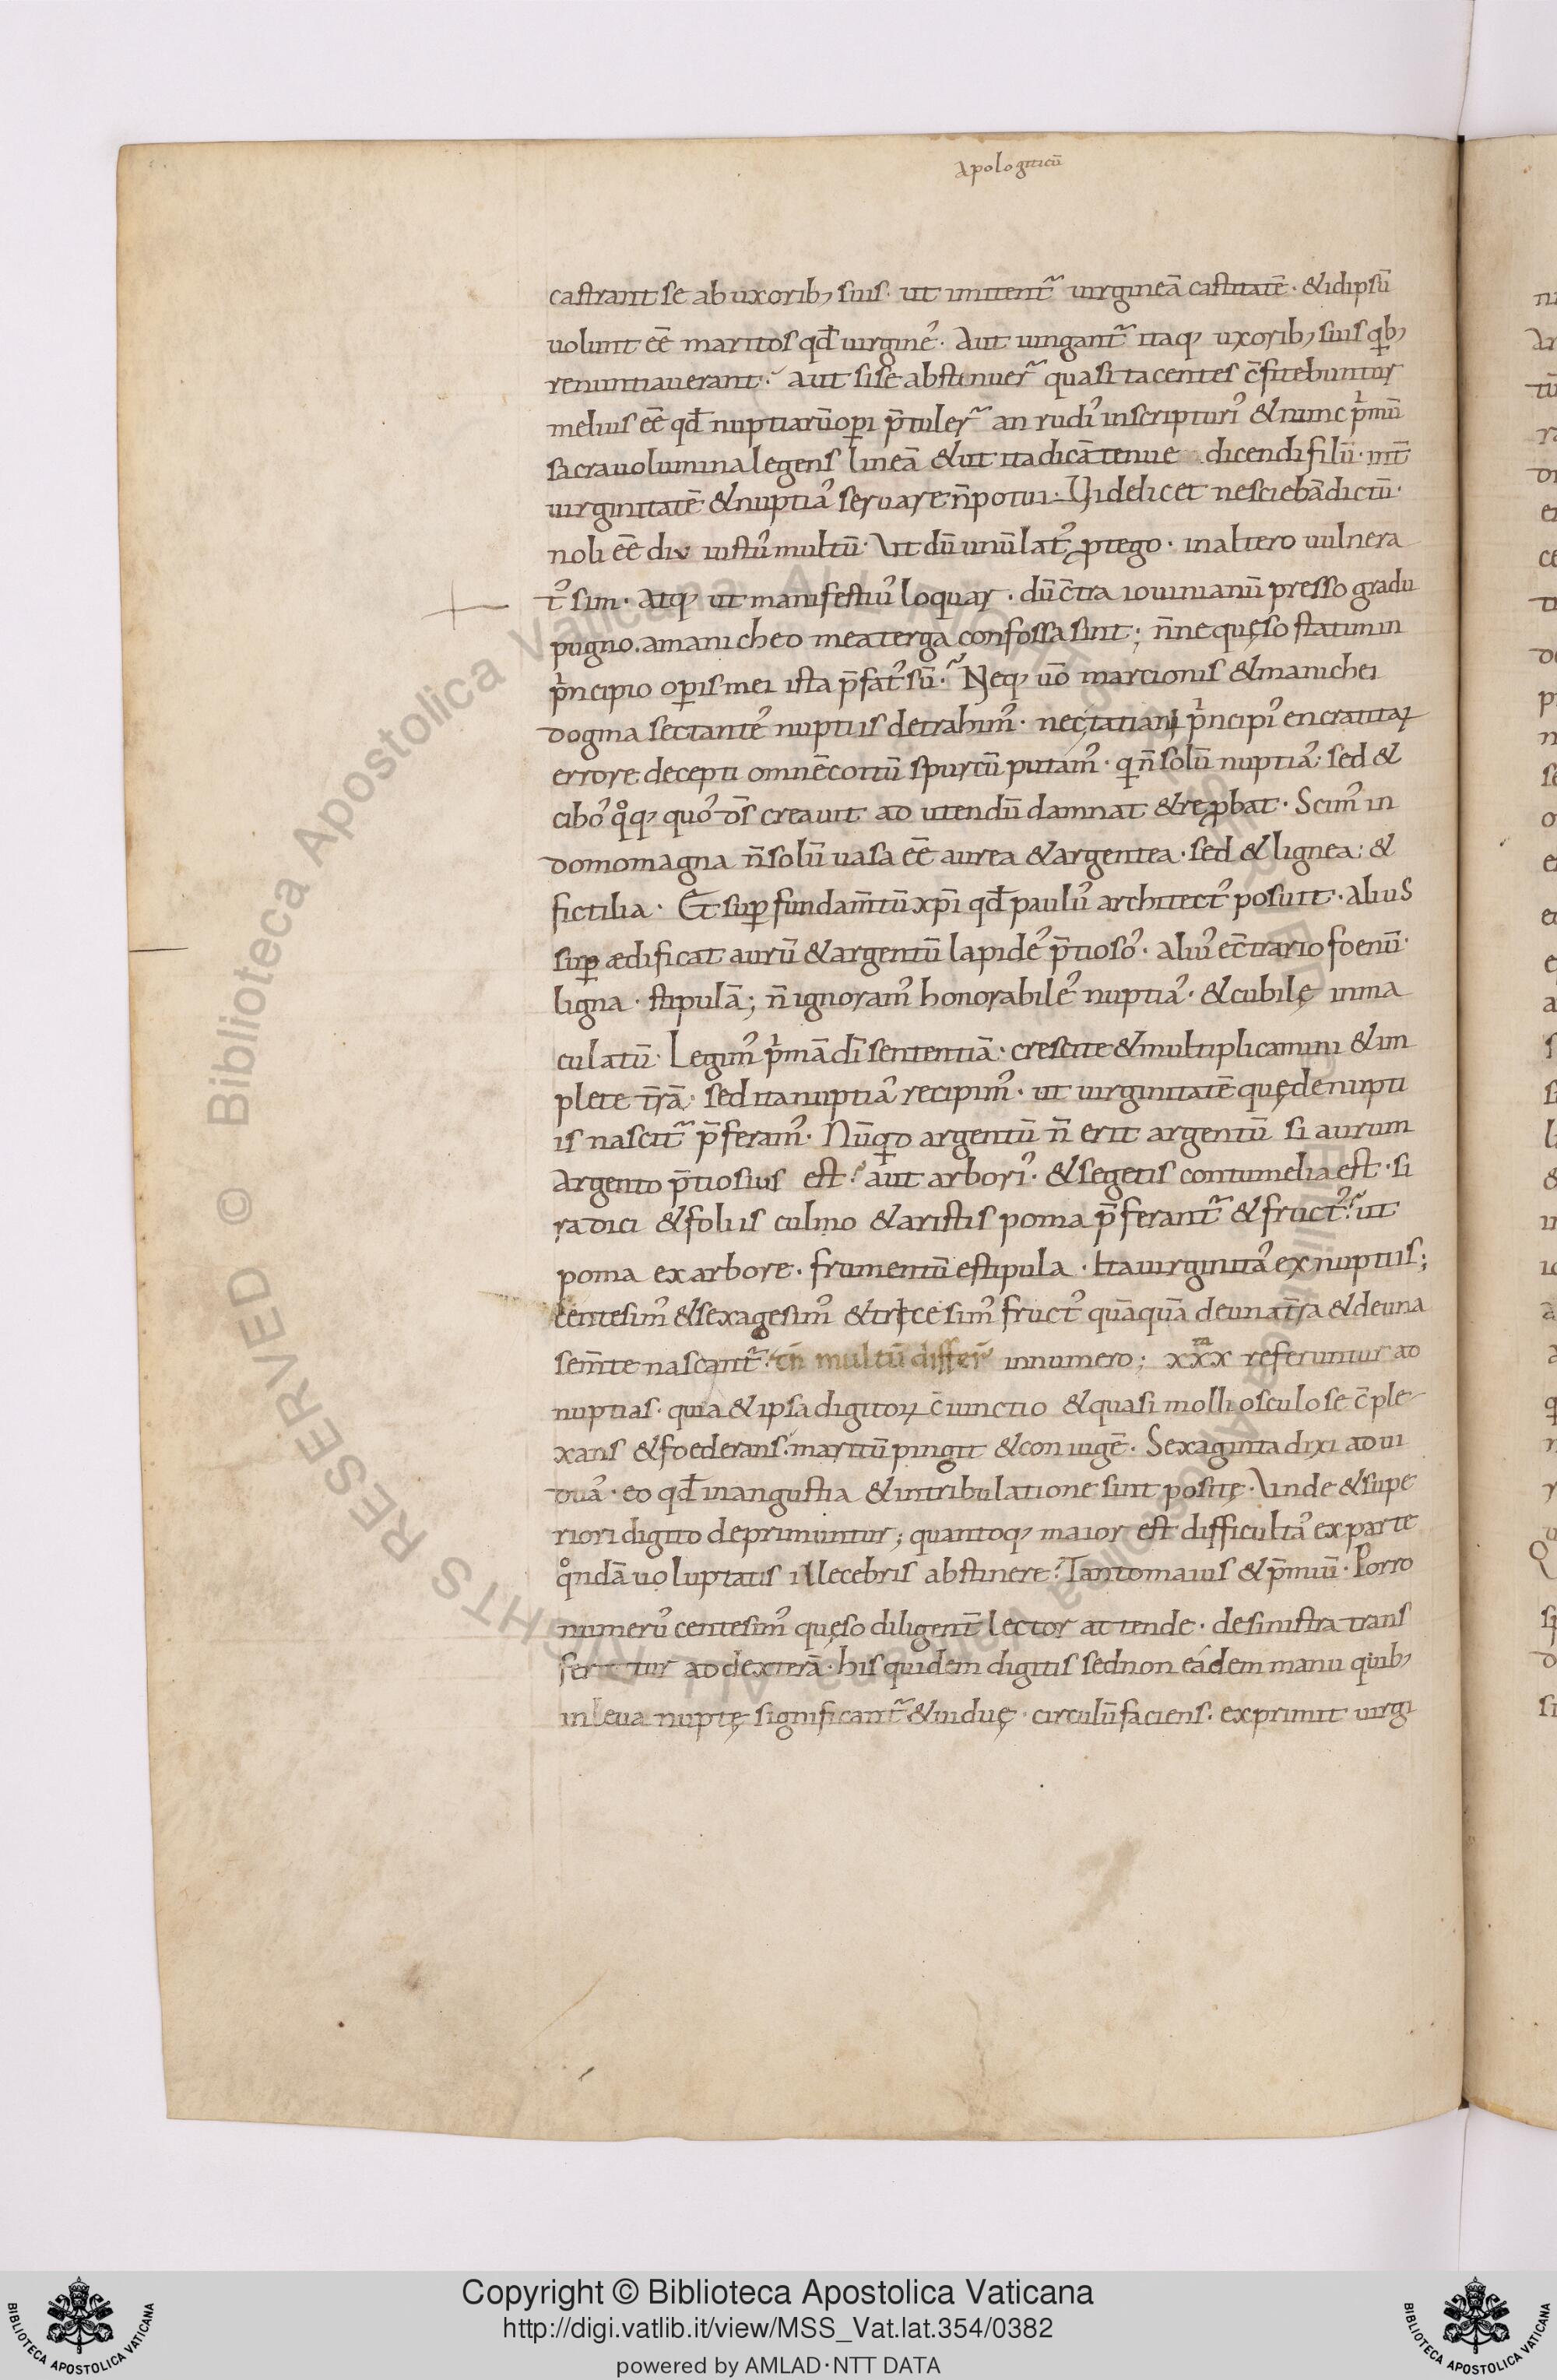 Apologiticū
castrant se ab uxorib; suis · ut imitent᷑ uirgineā castitatē · & idipsū
uolunt eē maritos qđ uirgine᾽ · Aut iungant᷑ itaq; uxorib; suis qb;
renuntiauerant · aut si se abstinuer᷑ quasi tacentes c̄fitebuntur
melius eē qđ nuptiarū oꝑi p̄tuler᷑ an rudi᾽ in scripturi᾽ & nunc pͥmū
sacra uolumina legens lineā & ut ita dicā tenue dicendi filū · int̄
uirginitatē & nuptia᾽ seruare n̄ potui · Videlicet nesciebā dictū ·
noli eē diu iustu᾽ multū · Ut dū unū lat᾽ ꝓtego · in altero uulnera
t᾽ sim · Atq; ut manifestiu᾽ loquar · dū c̄tra iouinianū presso gradu
pugno . a manicheo mea terga confossa sint ; n̄ne quęso statim in
pͥncipio oꝑis mei ista p̄fat᾽ sū · Neq; uō marcionis & manichei
dogma sectante᾽ nuptiis detrahim᾽ · nec tatiani pͥncipi᾽ encratitaꝝ
errore decepti omnē coitū spurcū putam᾽ · q n̄ solū nuptia᾽ : sed &
cibo᾽ qͦq; quo᾽ d̄s creauit ad utendū damnat & reꝓbat · Scim᾽ in
domo magna n̄ solū uasa eē aurea & argentea · sed & lignea : &
fictilia · Et suꝑ fundam̄tū xp̄i qđ paulu᾽ architect᾽ posuit · alius
suꝑ ædificat aurū & argentū lapide᾽ p̄tioso᾽ · aliu᾽ e c̄trario foenū ·
ligna · stipulā ; n̄ ignoram᾽ honorabile᾽ nuptia᾽ · & cubilę inma
culatū · Legim᾽ pͥmā di̅ sententiā · crescite & multiplicamini & im
plete t̄rā · sed ita nuptia᾽ recipim᾽ · ut uirginitatē quę de nupti
is nascit᷑ p̄feram᾽ · Nūqd argentū n̄ erit argentū si aurum
argento p̄tiosius est · aut arbori᾽ · & segetis contumelia est · si
radici & foliis culmo & aristis poma p̄ferant᷑ & fruct᾽ · ut
poma ex arbore · frumentū e stipula · Ita uirginita᾽ ex nuptiis ;
Centesim᾽ & sexagesim᾽ & tricesim᾽ fruct᾽ quāquā de una t̄ra & de una
sem̄te nascant᷑ · tn̄ multū differ᷑ in numero ; xxx referuntur ad
nuptias · quia & ipsa digitoꝝ c̄iunctio & quasi molli osculo se c̄ple
xans & foederans · maritū pingit & coniugē · Sexaginta dixi ad ui
dua᾽ · eo qđ in angustia & in tribulatione sint positę · Unde & supe
riori digito deprimuntur ; quantoq; maior est difficulta᾽ ex parte
qͦndā uoluptatis illecebris abstinere · Tanto maius & p̄miū · Porro
numeru᾽ centesim᾽ quęso diligent̄ lector attende · de sinistra trans
fertur ad dexterā · his quidem digitis sed non eádem manu quib;
in leua nuptę significant᷑ & uiduę · circulū faciens · exprimit uirgi
Copyright © Biblioteca Apostolica Vaticana
http://digi.vatlib.it/view/MSS_Vat.lat.354/0382
powered by AMLAD·NTT DATA
BIBLIOTECA APOSTOLICA VATICANA
BIBLIOTECA APOSTOLICA VATICANA